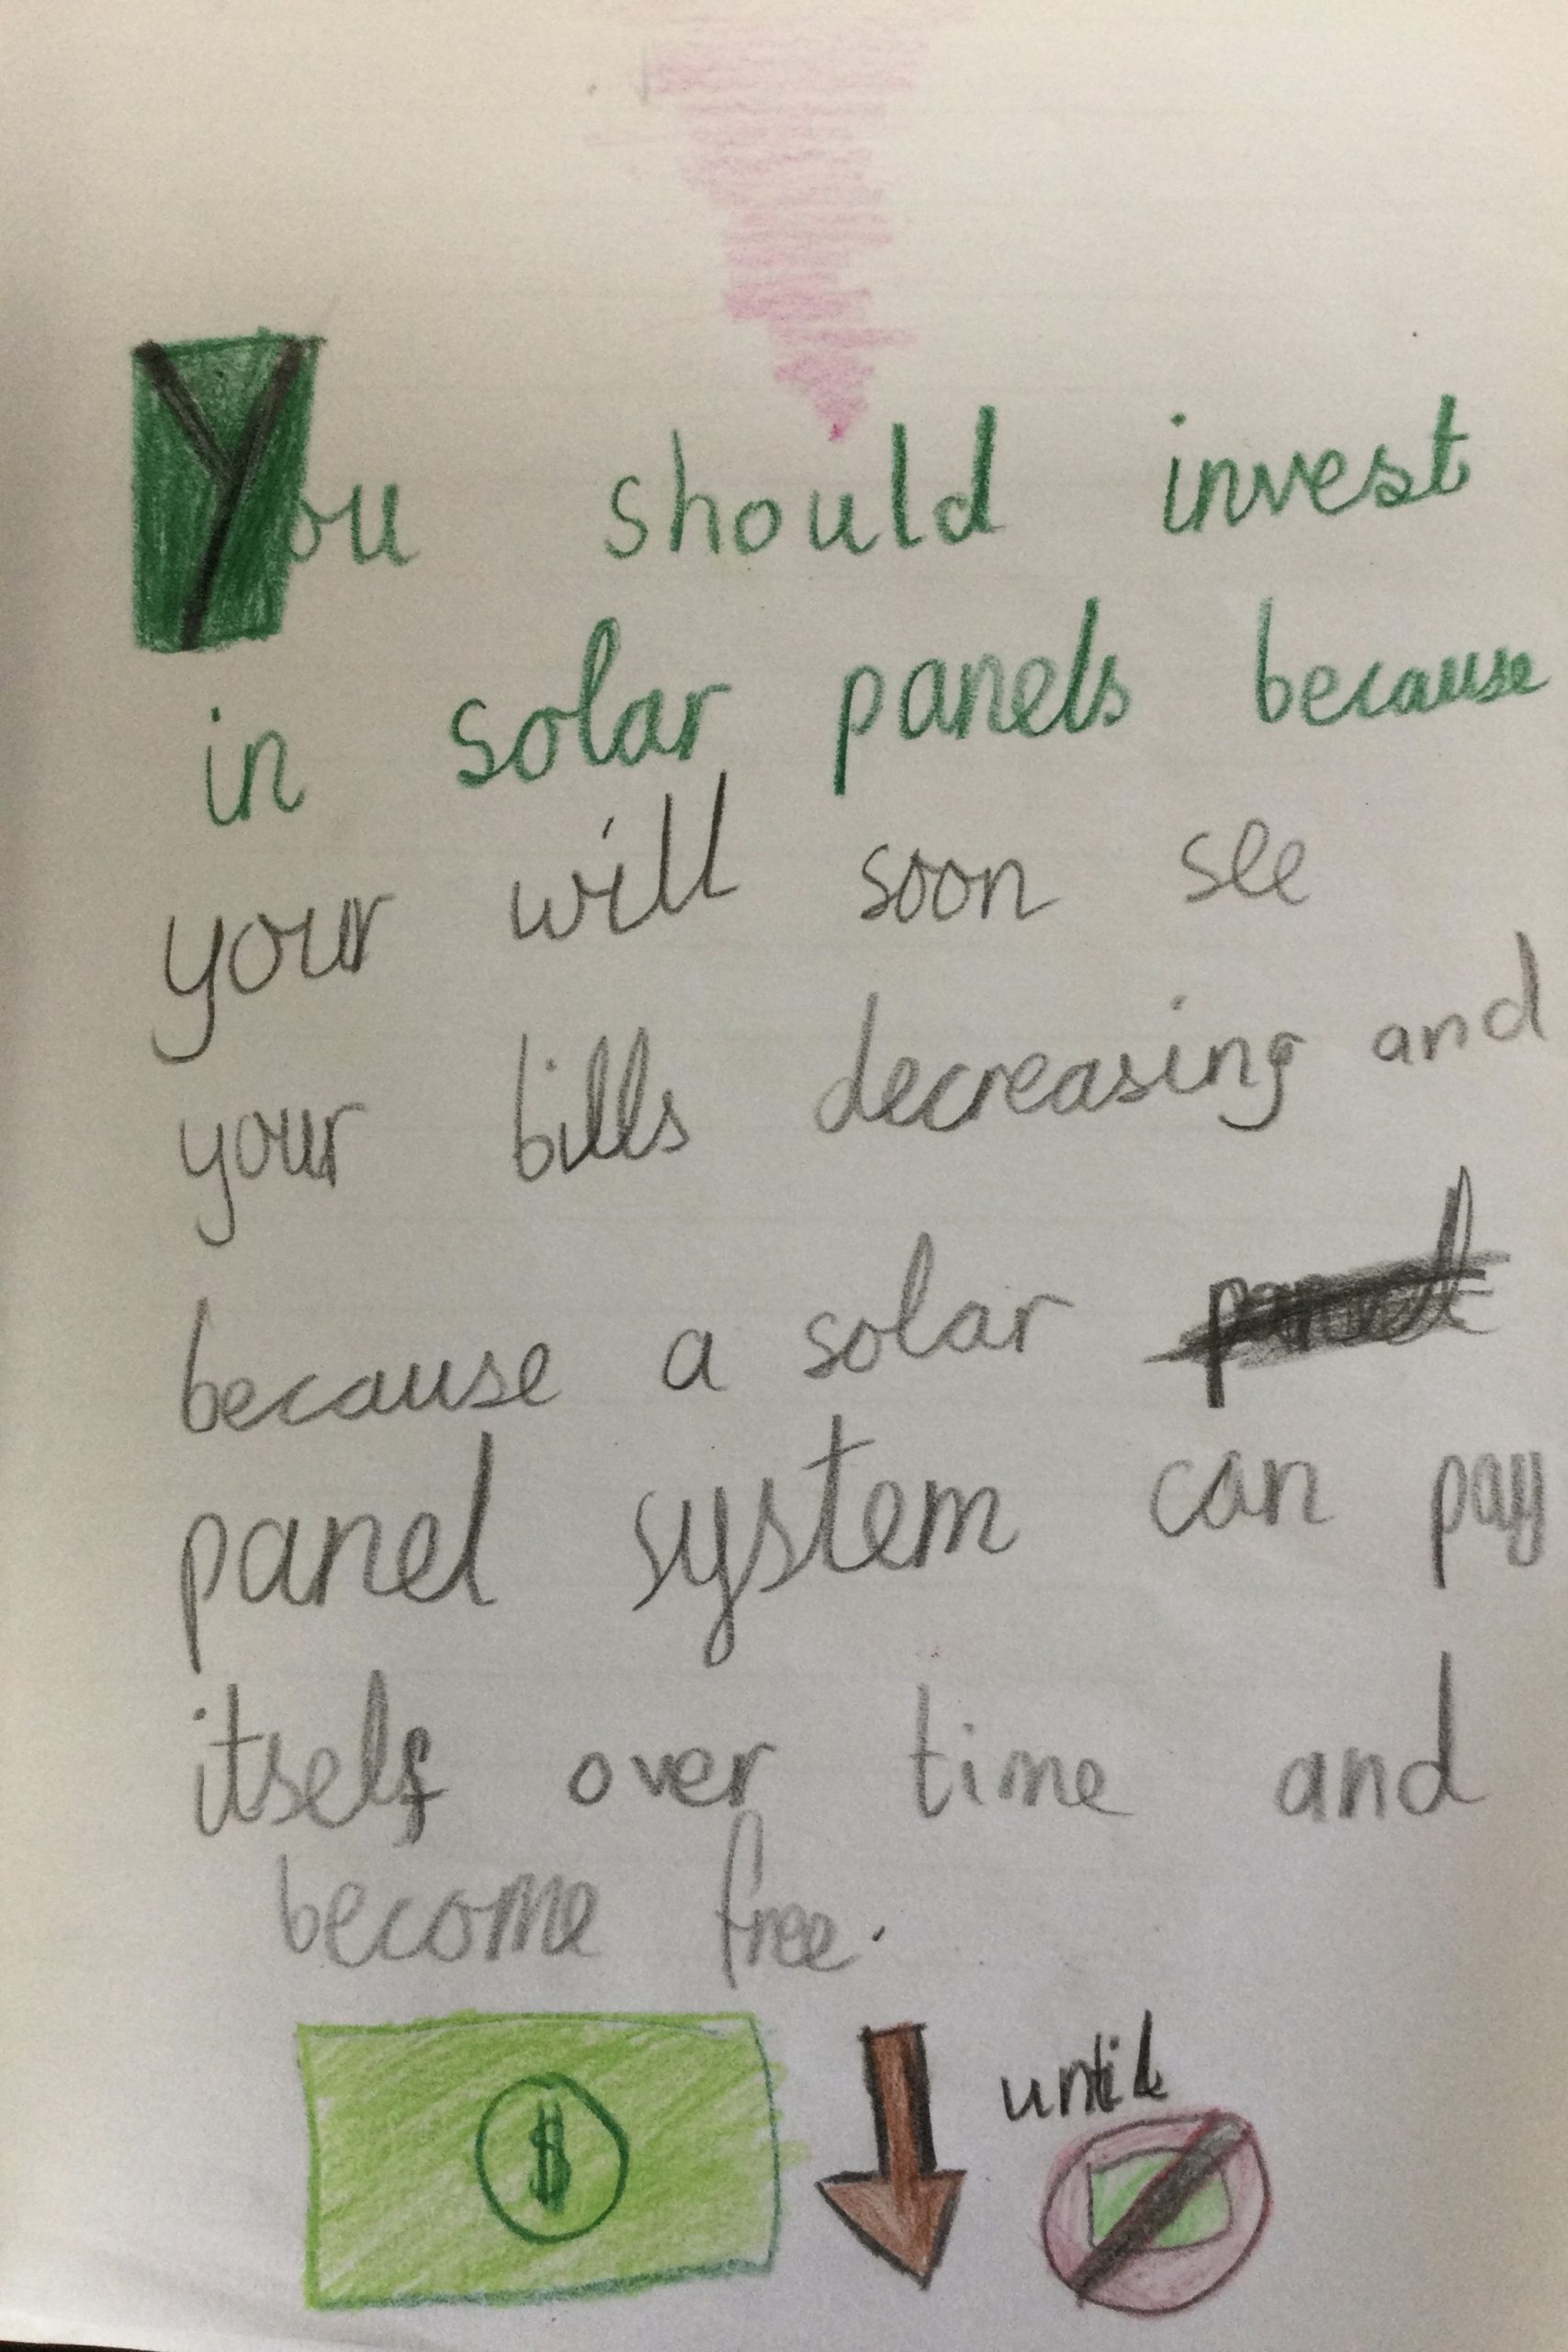 You should invest
in solar panels because
your will soon see
your bills decreasing and
because a solar panel
panel system can pay
itself over time and
become free.
$
until